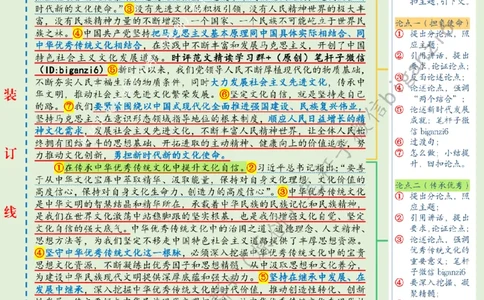 时代创新的文化。”③没有先进文化的积极引领，没有人民精神世界的极大丰
富，没有民族精神力量的不断增强，一个国家、一个民族不可能屹立于世界民
族之林。④中国共产党坚持把马克思主义基本原理同中国具体实际相结合、同
中华优秀传统文化相结合，在实践中不断丰富和发展马克思主义，开创了中国
特色社会主义文化发展道路。时评范文精读学习群+（原创）笔杆子微信
(ID:biganzi6)⑤新时代以来，我们党领导人民不断厚植现代化的物质基础，
不断夯实人民幸福生活的物质条件，同时大力发展社会主义先进文化，传承中
华文明，推动社会主义先进文化繁荣发展。⑥坚定文化自信，就是坚持走自己
的路。⑦我们要紧紧围绕以中国式现代化全面推进强国建设、民族复兴伟业，
坚持马克思主义在意识形态领域指导地位的根本制度，顺应人民日益增长的精
神文化需求，发展社会主义先进文化，不断丰富人民精神世界，让全体人民始
终拥有团结奋斗的思想基础、开拓进取的主动精神、健康向上的价值追求，努
力推动文化创新，勇担新时代新的文化使命。
①在传承中华优秀传统文化中提升文化自信。②习近平总书记指出：“要善
于从中华文化宝库中萃取精华、汲取能量，保持对自身文化理想、文化价值的
高度信心，保持对自身文化生命力、创造力的高度信心”。③中华优秀传统文化
是中华文明的智慧结晶和精华所在，承载着中华民族的民族记忆和民族精神，
是我们在世界文化激荡中站稳脚跟的坚实根基，也是我们增强文化自觉、坚定
文化自信的强大底气。中华优秀传统文化中的治国之道、道德理念、人文精神、
思想方法等，为我们坚定不移走中国特色社会主义道路提供了丰厚思想资源。
④坚守中华优秀传统文化这一根脉，必须深入挖掘中华优秀传统文化中的宝贵
思想文化资源，不断提炼出优秀因子和思想精髓，从中汲取思想和文化养分，
为建设中华民族现代文明提供深厚底蕴和强大动力。⑤坚持在继承中发展、在
发展中继承，深入挖掘中华优秀传统文化的时代价值，推动创造性转化、创新
装
订
线
论点一（担当使命）
① 提出分论点，照
应主题；
② 引用讲话，提出
要求，论证论点；
③ 反面论述论点；
④ 论述论点，强调
“两个结合”；
⑤ 论述新时代发展
成就；笔杆子微
信 biganzi6
⑥ 过渡句；
⑦ 怎么做，小结提
升、回扣论点。
论点二（传承优秀）
① 提出分论点，照
应主题；
② 引用讲话，提出
要求，论证论点；
③ 论述论点，强调
优秀传统文化的
重要意义；笔杆
子微信 biganzi6
④ 要深入挖掘、凝
聚精髓；